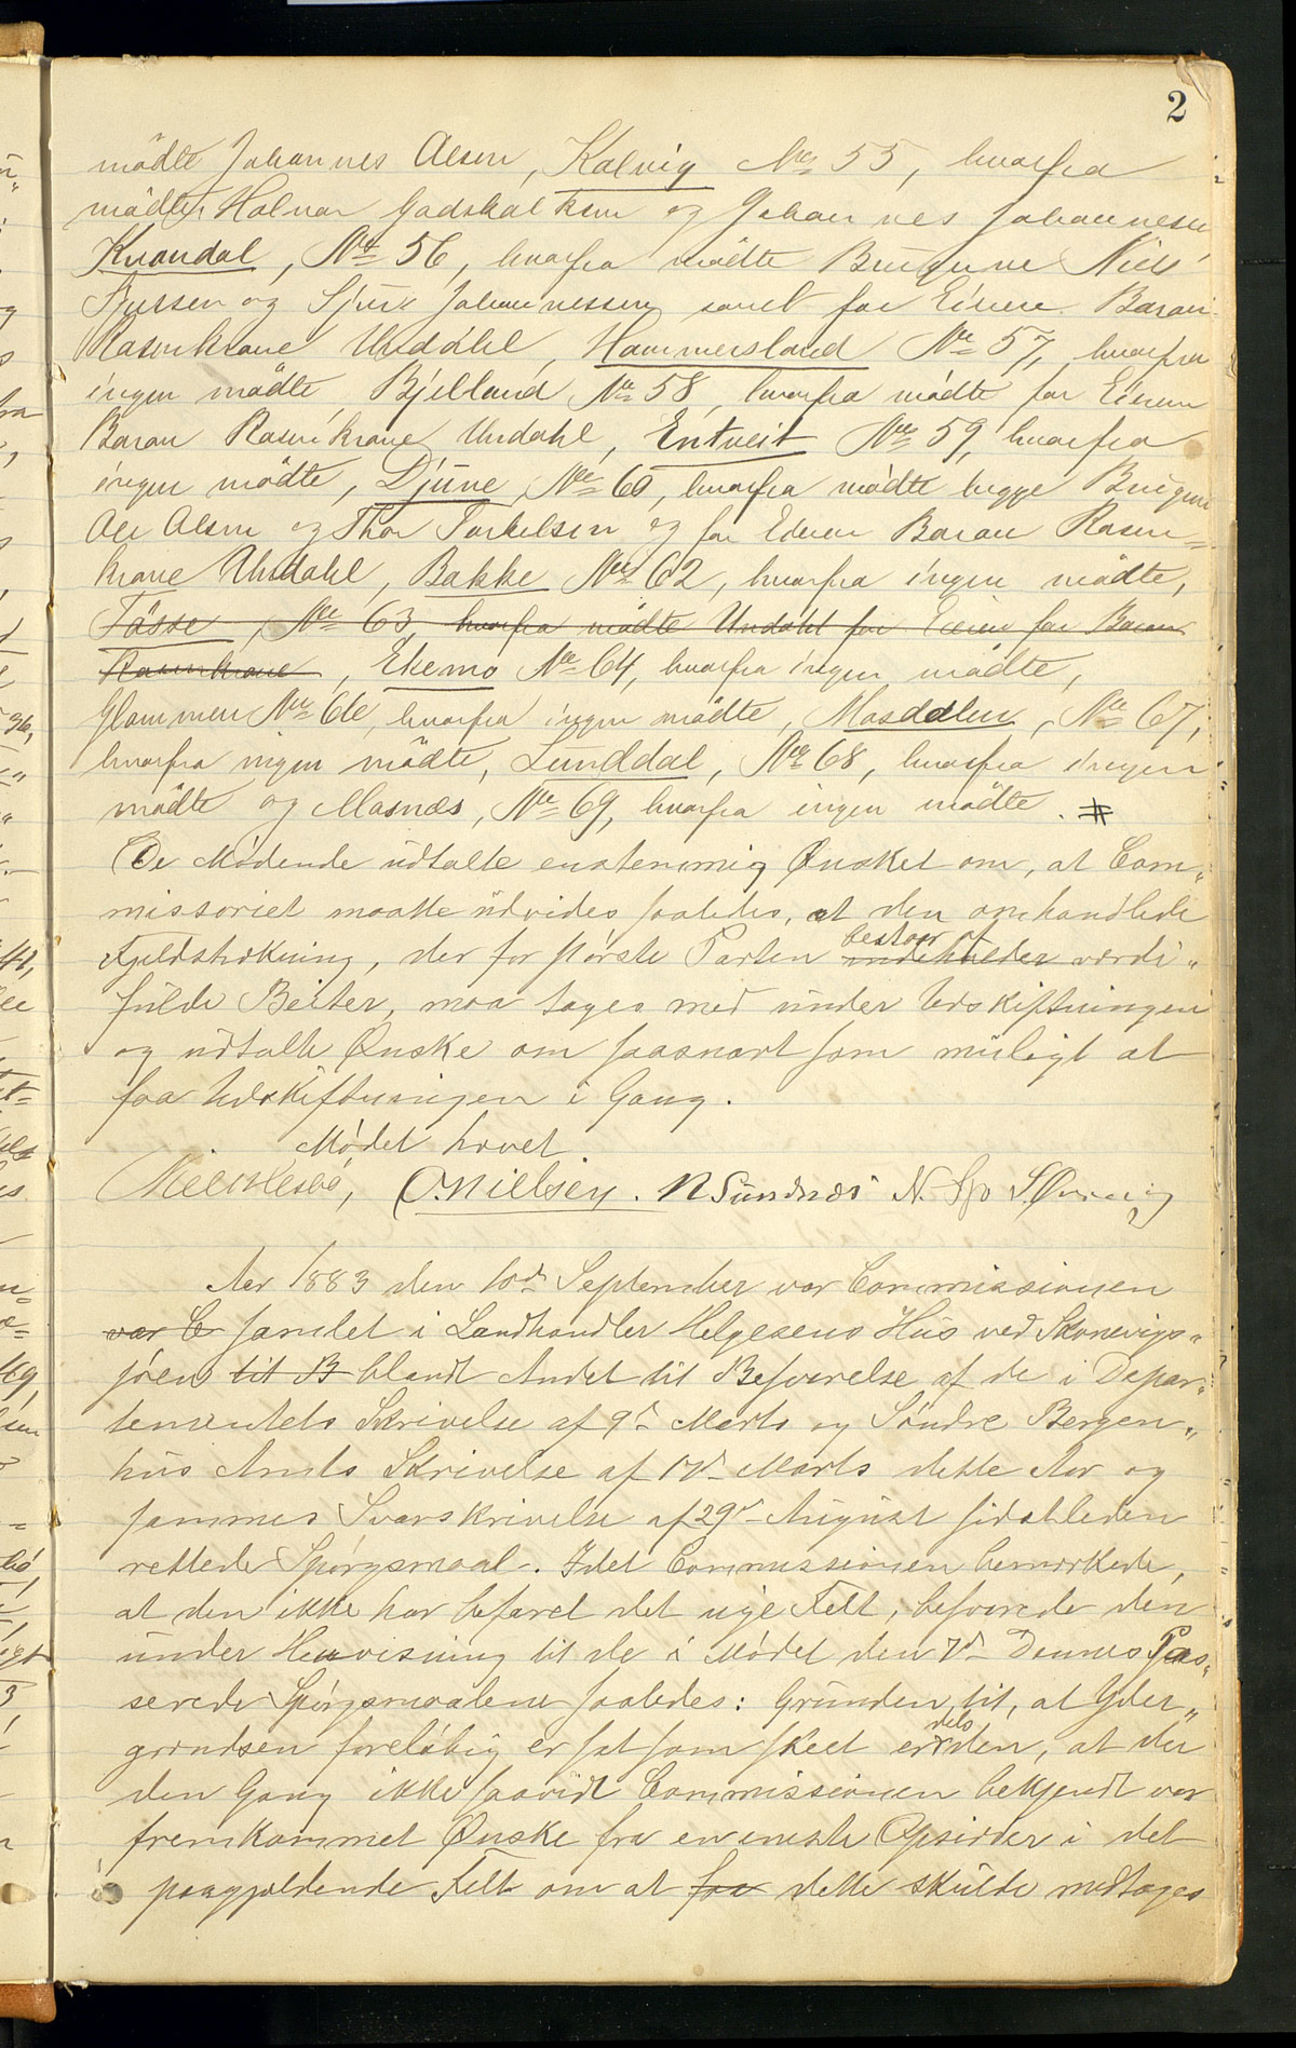 2
mödte Johannes Olsen, Kalvig No 55, hvorfra
mödte Halvor Godskalksen og Johannes Johannesen
Kvandal, No 56, hvorfra mödte Brugerne Niels
og Sjur Johannessen samt for Eieren Baron
Rosenkrone Undahl, Hammersland No 57, hvorfra
ingen mödte, Bjelland No 58, hvorfra mödte for Eieren
Baron Rosenkrone Undahl, Entveit No 59, hvorfra
ingen mödte, Djuve No 60, hvorfra mödte begge Brugerne
Ole Olsen og Thor Torkelsen og for Eieren Baron Rosen=
krone Undahl, Bakke No 62, hvorfra ingen mödte,
Fösse, No 63 hvorfra mödte Undahl for Eieren for Baron
Rosenkrone, Ekemo No 64, hvorfra ingen mödte,
Glommen No 66, hvorfra ingen mödte, Mosdalen, No 67,
hvorfra ingen mödte, Lunddal, No 68, hvorfra ingen
mödte og Mosnæs, No 69, hvorfra ingen mödte. #
De Mödende udtalte enstemmig Ønsket om, at Com„
missoriet maatte udvides saaledes, at den omhandlede
Fjeldstrækning, der for störste Parten indeholder værdi„
bestaar af
fulde Beiter, maa tages med under Udskiftningen
og udtalte Ønske om saasnart som muligt at
faa Udskiftningen i Gang.
Mödet hævet.
O. Nielsen. R Sundnæs N. Sjo S.
Aar 1883 den 10de September var Commissionen
var C samlet i Landhandler Helgesens Hus ved Skonevigs„
jöen til B blandt Andet til Besvarelse af de i Depar„
tementets Skrivelse af 9de Marts og Söndre Bergen„
hus Amts Skrivelse af 17de Marts dette Aar og
sammes Svarskrivelse af 29de August sidstleden
rettede Spörgsmaal. Idet Commissionen bemærkede,
at den ikke har befaret det nye Felt, besvarede den
under Henvisning til de i Mödet den 7de Dennes Pas„
serede Spörgsmaalene saaledes: Grunden til, at Yder„
grændsen forelöbig er sat som skeet er den, at der
dels
den Gang ikke saavidt Commissionen bekjendt var
fremkommet Ønske fra en eneste Opsidder i det
paagjældende Felt om at faa dette skulde medtages